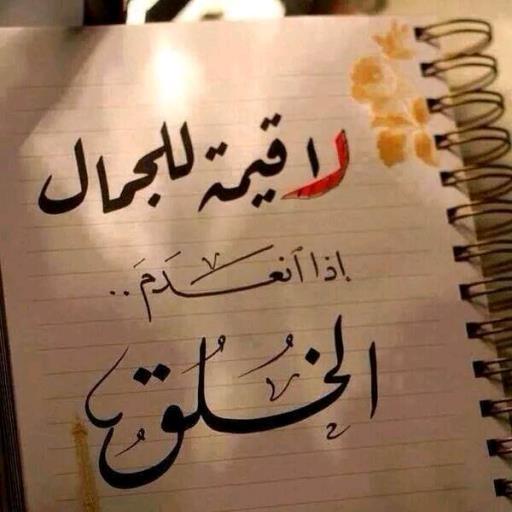 لا قيمة للجمال
إذا أنعدَمَ ..
الخُلُق